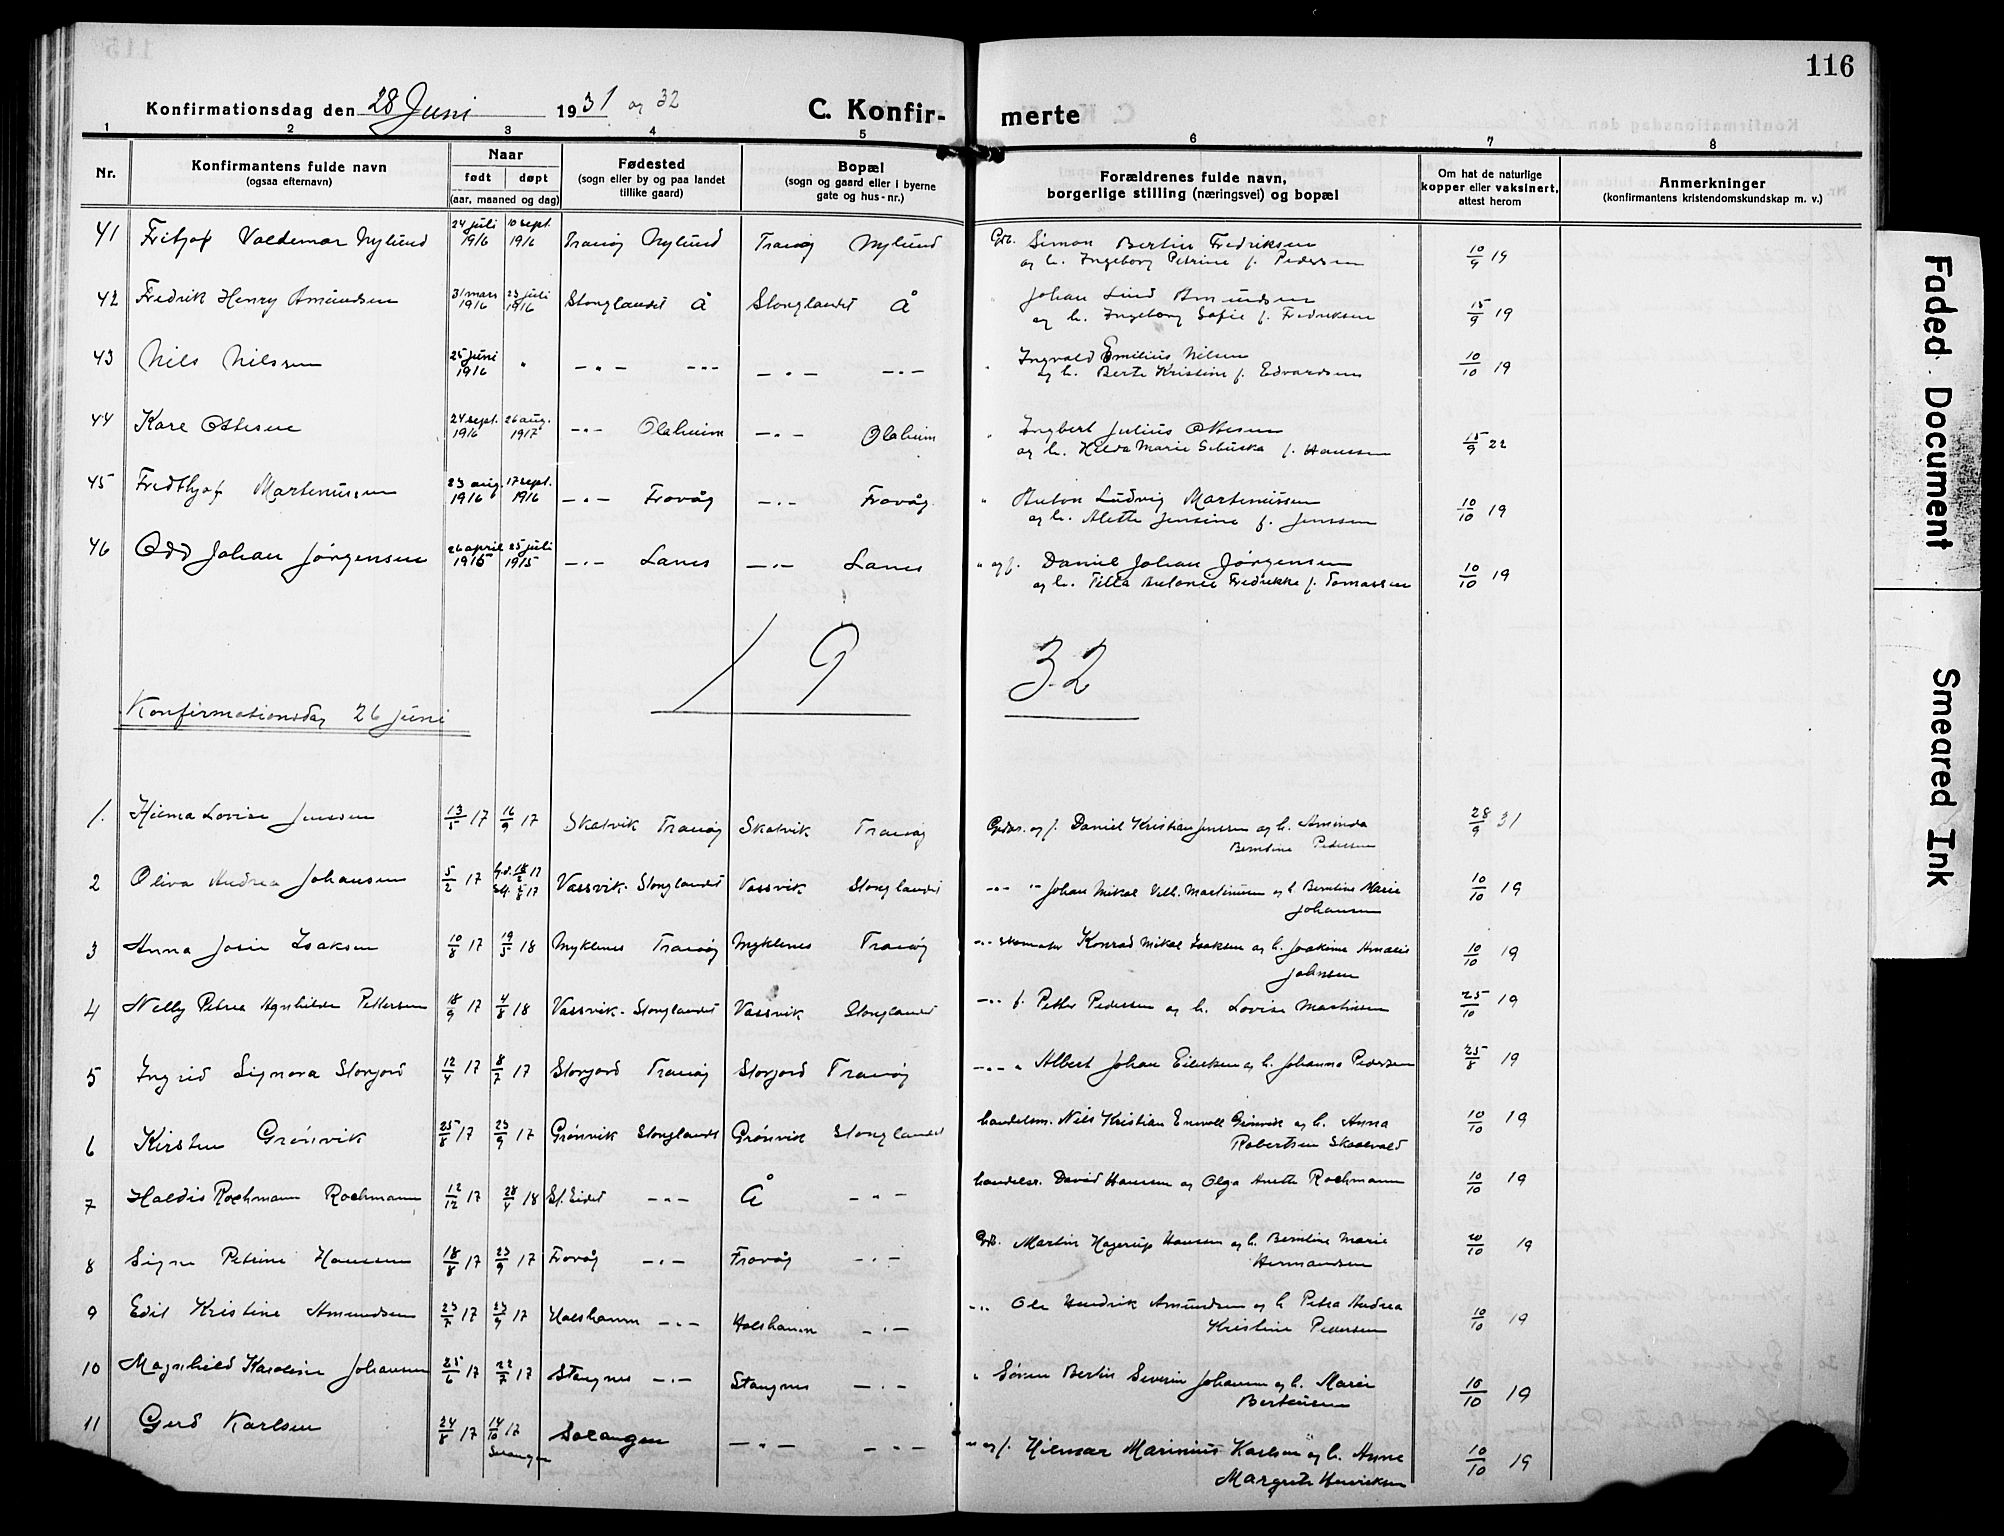 116
Konfirmationsdag den 28 Juni 1931 og 32
C. Konfir-merte
1 2 3 4 5 6 7 8
Nr.
Konfirmantens fulde navn
(ogsaa efternavn)
Naar
født døpt
(aar, maaned og dag)
Fødested
(sogn eller by og paa landet
tillike gaard)
Bopæl
(sogn og gaard eller i byerne
gate og hus-nr.)
Forældrenes fulde navn,
borgerlige stilling (næringsvei) og bopæl
Om hat de naturlige
kopper eller vaksinert,
attest herom
Anmerkninger
(konfirmantens kristendomskundskap m. v.)
41 Fritjof Valdemar Nylund 24 juli 1916 10 sept. 1916 Tranøy Nylund Tranøy Nylund Gdb. Simon Bertin Fredriksen 10/9 19
og h. Ingeborg Petrine f. Pedersen
42 Fredrik Henry Amundsen 31 mars 1916 23 juli 1916 Stonglandet Å Stonglandet Å " Johan Lind Amundsen 15/9 19
og h. Ingeborg Sofie f. Fredriksen
43 Nils Nilssen 25 juni 1916 " -"- -"- -"- -"- " Ingvald Emilius Nilsen 10/10 19
og h. Berte Kristine f. Edvardsen
44 Kare Ottesen 24 sept. 1916 26 aug. 1917 -"- Olaheim -"- Olaheim " Ingbert Julius Ottesen 15/9 22
og h. Hilda Marie f. Hanssen
45 Fredthjof Martenussen 23 aug. 1916 17 sept. 1916 -"- Frovåg -"- Frovåg " Anton Ludvig Martenussen 10/10 19
og h. Alette Jensine f. Jenssen
46 Odd Johan Jørgensen 26 april 1915 25 juli 1915 -"- Lanes -"- Lanes " og f. Daniel Johan Jørgensen 10/10 19
og h. Tilla Antonie Fredrikke f. Tomassen
19 32
Konfirmationsdag 26 juni
1. Hilma Lovise Jenssen 13/5 17 16/9 17 Skatvik Tranøy Skatvik Tranøy Gdbr. og f. Daniel Kristian Jenssen og h. Aminda 28/9 31
Berntine Pedersen
2 Oliva Andrea Johansen 5/2 17 Vassvik Stonglandet Vassvik Stonglandet -"- " Johan Mikal Vilh. Martinusen og h. Berntine Marie 10/10 19
Johansen
3 Anna Josie Isaksen 10/8 17 19/5 18 Myklenes Tranøy Myklenes Tranøy -"- skomaker Konrad Mikal Isaksen og h. Joakime Amalie 10/10 19
Johnsen
4 Nelly Petrea Agnhilda Pettersen 18/9 17 4/8 18 Vassvik Stonglandet Vassvik Stonglandet -"- f. Petter Pedersen og h. Lovise Martinsen 25/10 19
5 Ingrid Signora Storjord 12/4 17 8/7 17 Storjord Tranøy Storjord Tranøy -"- " Albert Johan Eilertsen og h. Johanna Pedersen 25/8 19
6 Kirsten Grønvik 25/8 17 23/9 17 Grønvik Stonglandet Grønvik Stonglandet handelsm. Nils Kristian Enevold Grønvik og h. Anna 10/10 19
Robertsen Skaalvold
7 Haldis Rochmann Rochmann 12/12 17 28/4 18 St. Eidet -"- Å -"- handelsr. David Hansen og Olga Anette Rochmann 10/10 19
8 Signe Petrine Hanssen 18/8 17 23/9 17 Frovåg -"- Frovåg -"- Gdb. Martin Hagerup Hansen og h. Berntine Marie 20/10 19
Hermandsen
9 Edit Kristine Amundsen 23/7 17 23/9 17 Halshamn -"- Halshamn -"- -"- Ole Hendrik Amundsen og h. Petra Andrea 10/10 19
Kristine Pedersen
10 Magnhild Karoline Johansen 25/6 17 22/7 17 Stangnes -"- Stangnes -"- " Søren Bertin Severin Johansen og h. Marie 10/10 19
Berteusen
11 Gerd Karlsen 24/8 17 14/10 17 Salangen Salangen -"- -"- " og f. Hilmar Marinius Karlsen og h. Anne 10/10 19
Margrete Henriksen
Faded Document
Smeared Ink